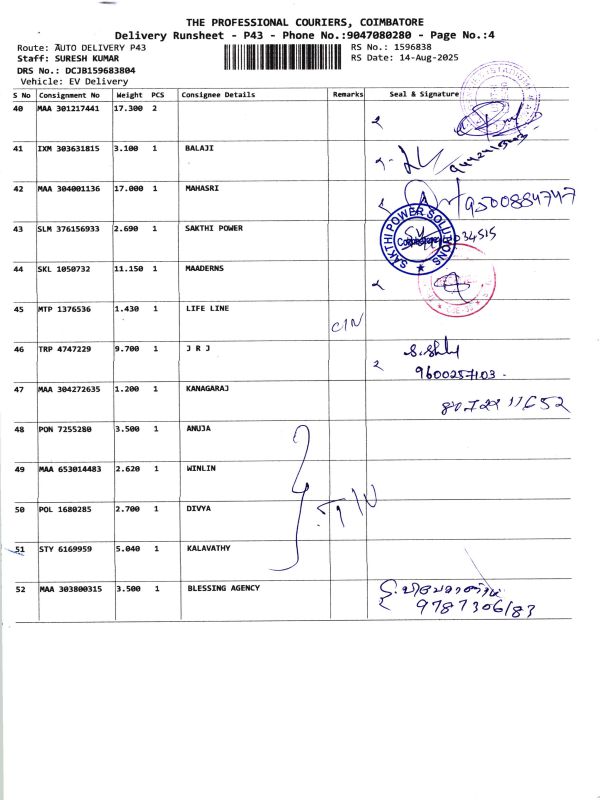 THE PROFESSIONAL COURIERS, COIMBATORE
Delivery Runsheet - P43 - Phone No.:9047080280 - Page No.:4
Route: AUTO DELIVERY P43 RS No.: 1596838
Staff: SURESH KUMAR RS Date: 14-Aug-2025
DRS No.: DCJB159683804
Vehicle: EV Delivery
S No Consignment No Weight PCS Consignee Details Remarks Seal & Signature
40 MAA 301217441 17.300 2
41 IXM 303631815 3.100 1 BALAJI
42 MAA 304001136 17.000 1 MAHASRI
9500884747
43 SLM 376156933 2.690 1 SAKTHI POWER
SAKTHI POWER SOLUTIONS
44 SKL 1050732 11.150 1 MAADERNS
45 MTP 1376536 1.430 1 LIFE LINE
C/N
46 TRP 4747229 9.700 1 J R J
9600257103.
47 MAA 304272635 1.200 1 KANAGARAJ
48 PON 7255280 3.500 1 ANUJA
49 MAA 653014483 2.620 1 WINLIN
50 POL 1680285 2.700 1 DIVYA
51 STY 6169959 5.040 1 KALAVATHY
52 MAA 303800315 3.500 1 BLESSING AGENCY
9787306183